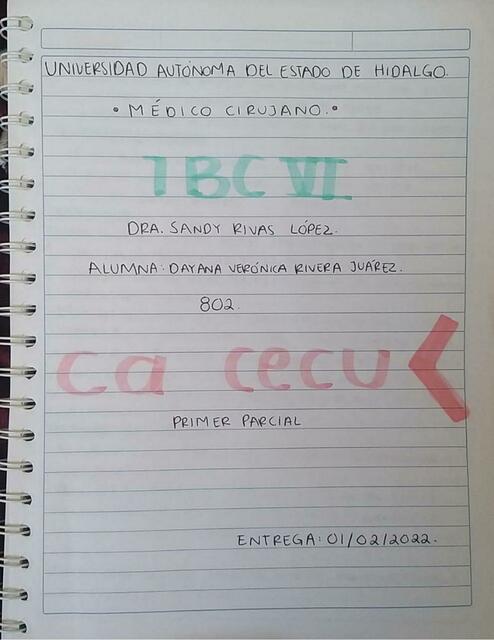 UNIVERSIDAD AUTÓNOMA DEL ESTADO DE HIDALGO.
• MÉDICO CIRUJANO. •
IBC VI
DRA. SANDY RIVAS LÓPEZ.
ALUMNA: DAYANA VERÓNICA RIVERA JUÁREZ.
802.
ca cecu
PRIMER PARCIAL
ENTREGA: 01/02/2022.